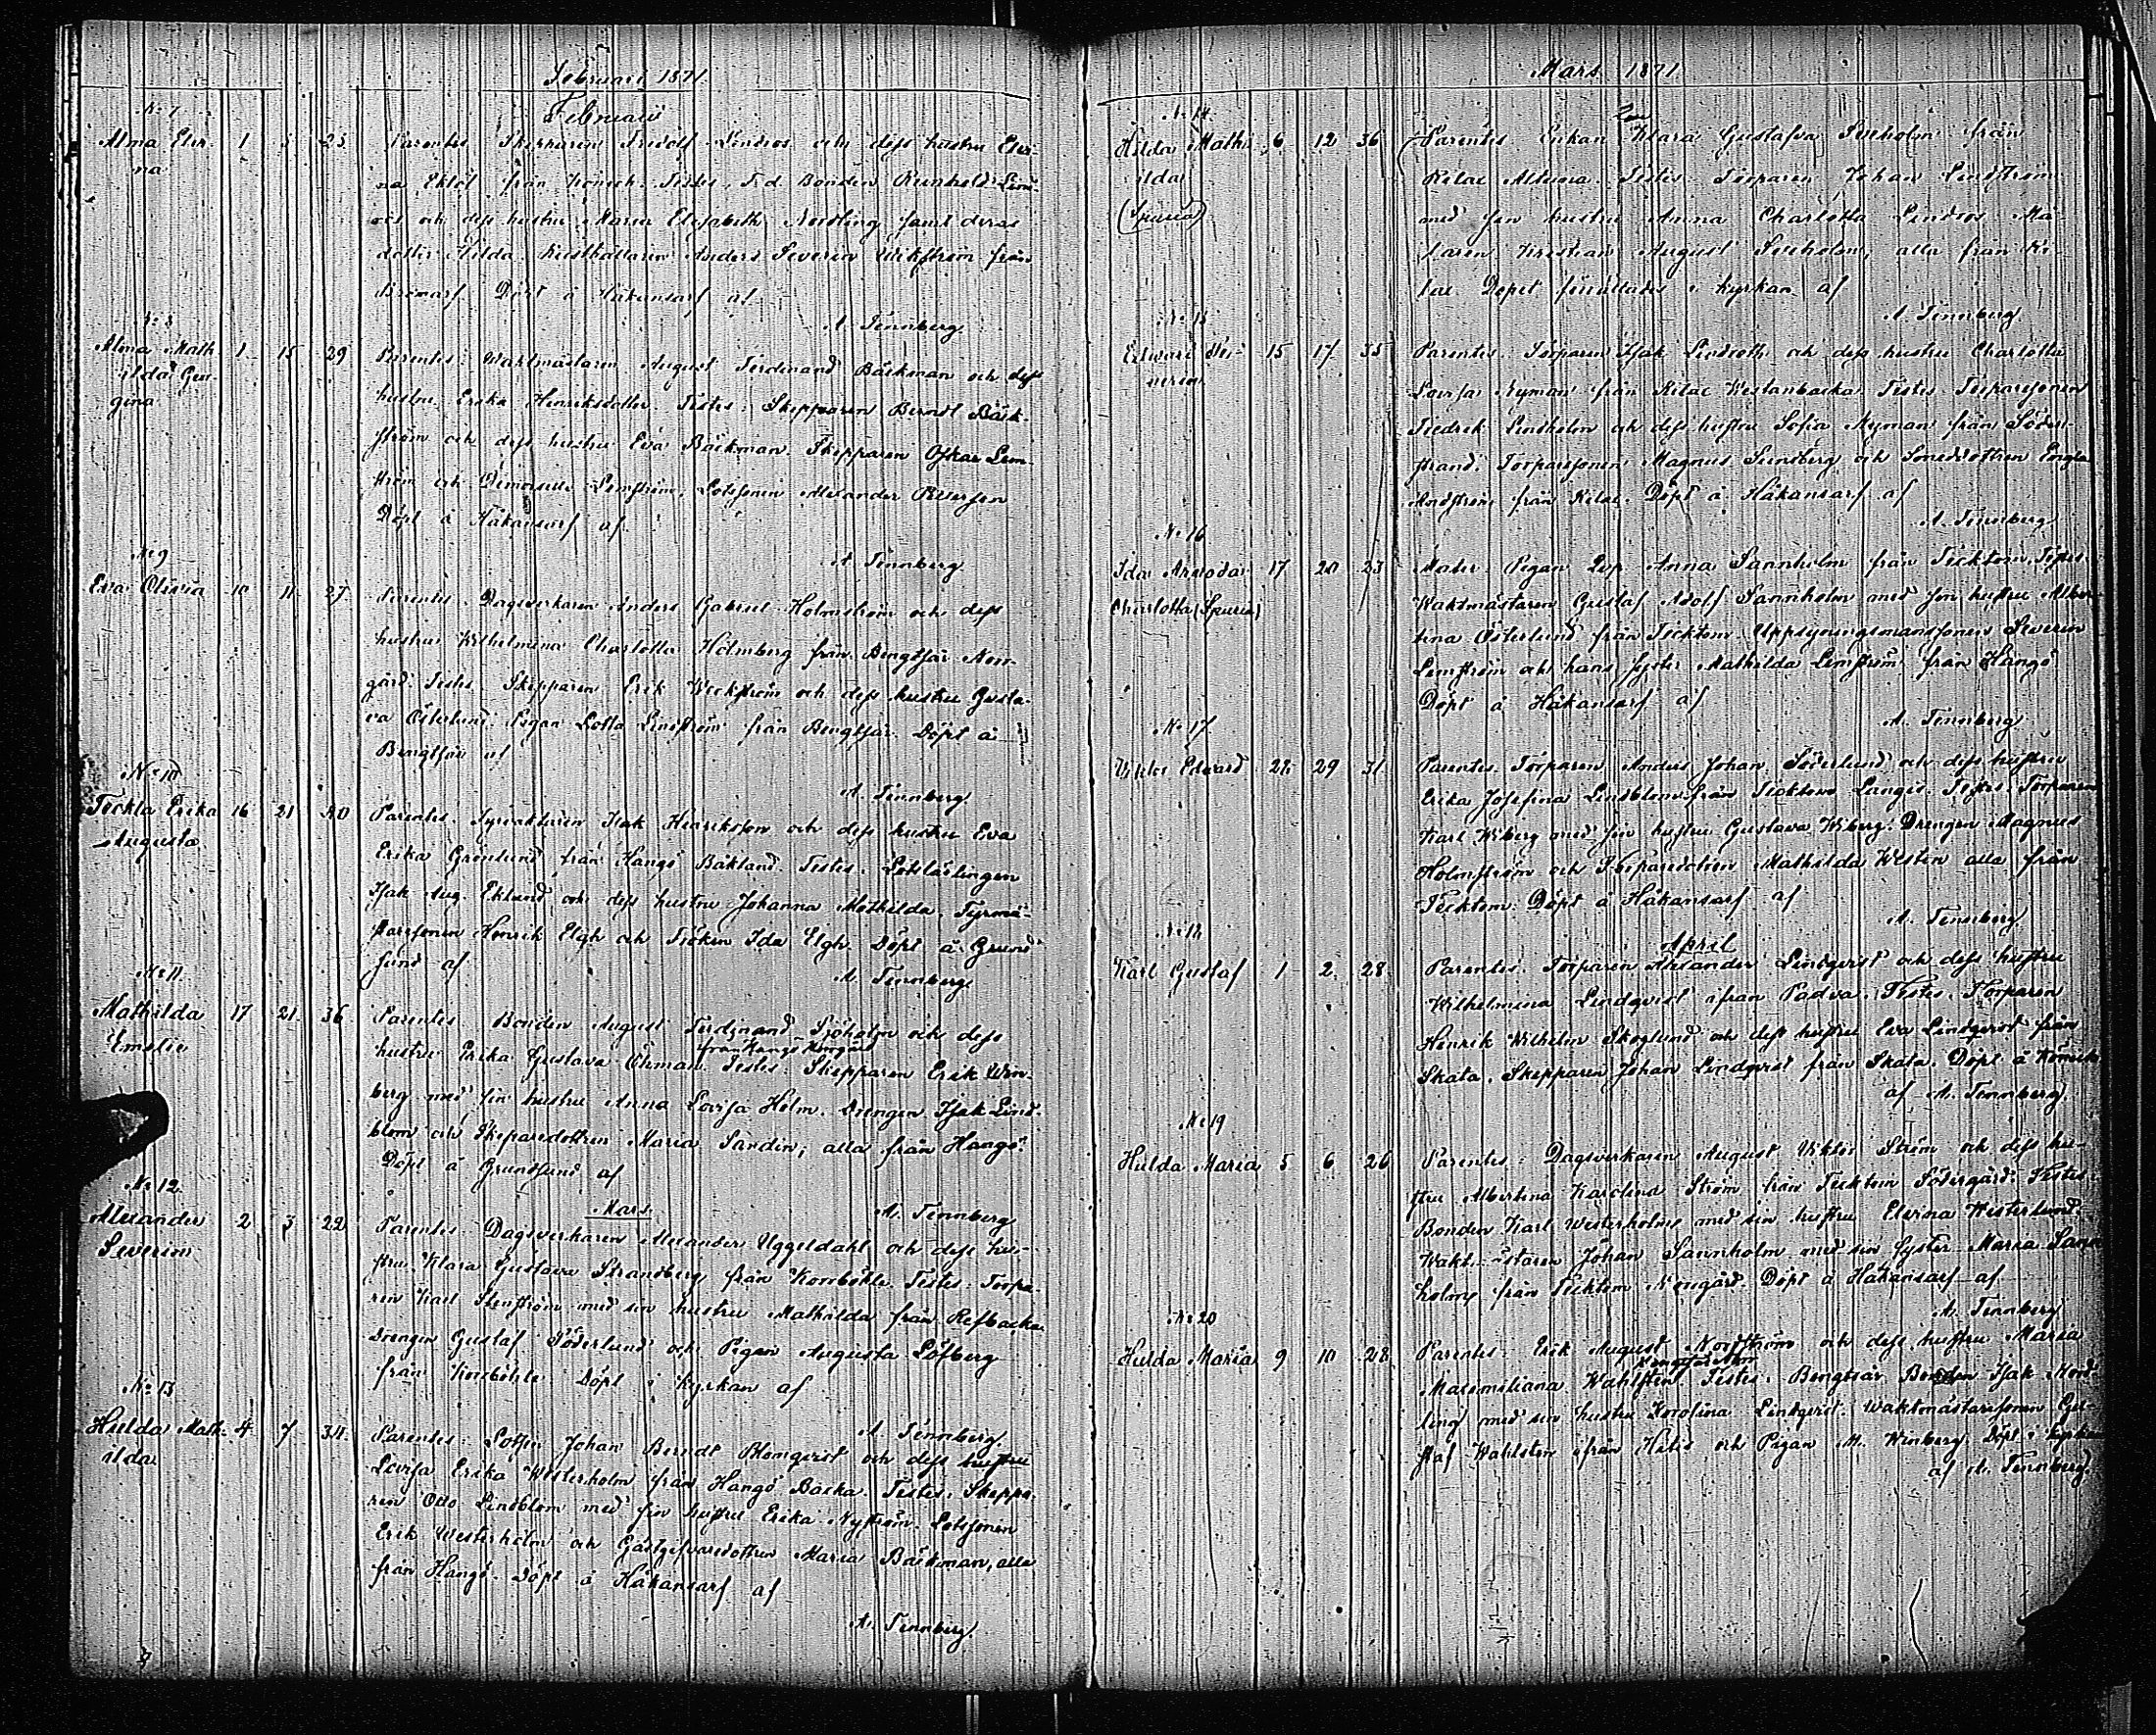 Februari 1871
Februari
No 7
Alma Elvi- 1 5 25 Parentes Skepparen Fridolf Lindros och dess hustru Elvi-
na
na Eklöf från Testes F.d. Bonden Reinhold Lind-
ros och dess hustru Maria Elisabeth Nordling samt deras
dotter Hilda. Rusthållaren Anders Severin Wikström från
Bromarf Döpt å Håkansarf af
A Tennberg
No 8
Alma Math 1 15 29 Parentes: Waktmästaren August Ferdinand Bäckman och dess
ilda Geor-
gina
hustru Erika Henriksdotter. Testes: Skepparen Berndt Bäck-
ström och dess hustru Eva Bäckman. Skepparen Oskar Lem-
ström och Lemström, Lotssonen Alexander Petersson
Döpt å Håkansarf af
A Tennberg
No 9
Eva Olivia 10 11 27 Parentes. Dagsverkaren Anders Gabriel Holmström och dess
hustru Wilhelmina Charlotta Holmberg från Bengtsår Norr-
gård. Testes. Skepparen Erik Weckström och dess hustru Gusta-
va Österlund. Pigan Lotta Lindström från Bengtsår. Döpt å
Bengtsår af
A. Tennberg
No 10
Teckla Erika 16 21 40 Parentes. Fyrvaktaren Isak Henriksson och dess hustru Eva
Augusta
Erika Grönlund från Hangö Bäkland. Testes. Lotslärlingen
Isak Aug. Eklund och dess hustru Johanna Mathilda. Fyrmä-
starssonen Henrik Elgh och Fröken Ida Elgh. Döpt å Grund-
sund af
A. Tennberg
No 11.
Mathilda 17 21 36 Parentes Bonden August Ferdinand Sjöholm och dess
Emelie
från Hangö Norrgård
hustru Erika Gustava Öhman Testes: Skepparen Erik Win-
berg med sin hustru Anna Lovisa Holm. Drengen Isak Lind-
blom och Skeparedottren Maria Sandin; alla från Hangö.
Döpt å Grundsund af
A. Tennberg
Mars
No 12.
Alexander 2 3 22 Parentes Dagsverkaren Alexander Uggeldahl och dess hu-
Severin
stru Klara Gustava Strandberg från Kornböhle. Testes: Torpa-
ren Karl Stenström med sin hustru Mathilda från Refbacka
Drengen Gustaf Söderlund och Pigan Augusta Löfberg
från Kornböhle Döpt i Kyrkan af
A. Tennberg
No 13
Hulda Math- 4 7 34 Parentes: Lotsen Johan Berndt Blomqvist och dess hustru
ilda
Lovisa Erika Westerholm från Hangö Backa. Testes: Skeppa-
ren Otto Lindblom med sin hustru Erika Nyström. Lotssonen
Erik Westerholm och Gästgifvaredottren Maria Bäckman, alla
från Hangö. Döpt å Håkansarf af
A. Tennberg
Mars 1871
No 14
Hilda Mathi- 6 12 36 Parentes Enkan Klara Gustafva Sveholm från
ilda
(Spuria)
Kilae Testes Torparen Johan Lindström
med sin hustru Anna Charlotta Lindros
Kristian August Sveholm, alla från Ki-
lae Dopet förrättades i kyrkan af
A. Tennberg
No 15
Edward Se- 15 17 35 Parentes. Torparen Isak Lindroth och dess hustru Charlotta
verin
Lovisa Nyman från Kilae Westanbacka. Testes Torparesonen
Fredrik Lindholm och dess hustru Sofia Nyman från Söder-
strand. Torparesonen Magnus Sundberg och Smededottren Engla
Andström från Kilae. Döpt å Håkansarf af
A. Tennberg
No 16
Ida 17 20 23 Mater. Pigan Anna Sannholm från Ticktom. Testes
Charlotta (Spuria)
Waktmästaren Gustaf Adolf Sannholm med sin hustru Alber-
tina Österlund från Ticktom. Uppsyningsmanssonen Severin
Lemström och hans syster Mathilda Lemström från Hangö
Döpt å Håkansarf af
A. Tennberg
No 17
Viktor Edvard 28 29 31 Parentes. Torparen Anders Johan Söderlund och dess hustru
Erika Josefina Lindblom från Ticktom Langis. Testes. Torparen
Karl Wiberg med sin hustru Gustava Wiberg. Drengen Magnus
Holmström och Torparedottren Mathilda Westen alla från
Ticktom. Döpt å Håkansarf af
A. Tennberg
No 18
April
Karl Gustaf 1 2 28 Parentes. Torparen Alexander Lindqvist och dess hustru
Wilhelmina Lindqvist ifrån Padva. Testes. Torparen
Henrik Wilhelm Skoglund och dess hustru Eva Lindqvist från
Skata. Skepparen Johan Lindqvist från Skata. Döpt å
af A. Tennberg
No 19
Hulda Maria 5 6 26 Parentes: Dagsverkaren August Viktor Ström och dess hu-
stru Albertina Karolina Ström från Ticktom Södergård. Testes
Bonden Karl Westerholm med sin hustru Elvina Westerlund
Waktmästaren Johan Sannholm med sin syster Maria Sann
holm från Ticktom Norrgård. Döpt å Håkansarf af
A. Tennberg
No 20
Hulda Maria 9 10 28 Parentes. Erik August Nordström och dess hustru Maria
Maximiliana Wahlsten Testes. Bengtsår Bonden Isak Nord-
ling med sin hustru Karolina Lindqvist. Waktmästaresonen Gu-
staf Wahlsten ifrån Hitis och Pigan M. Winberg. Döpt i kyrkan
af A. Tennberg.